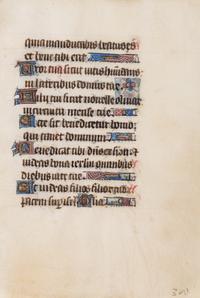 quia manducabis beatus es
et bene tibi erit
Uxor tua sicut vitis habundans
in lateribus domus tue
Filii tui sicut novelle olivar
in circuitu mense tue
Ecce sic benedicetur homo
qui timet dominum
Benedicat tibi dns ex syon et
videas bona ierlm omnibus
diebus vite tue
Et videas filios filiorum
pacem super isrl